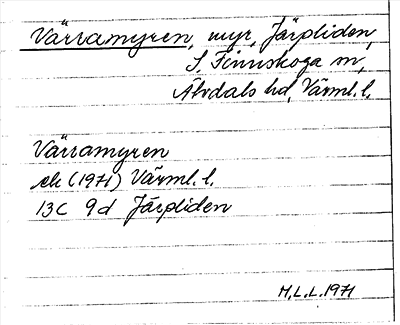 Värramyren, myr, Järpliden,
S Finnskoga sn,
Älvdals hd, Värml. l.
Värramyren
ek (1971) Värml. l.
13C 9d Järpliden
M.L.L. 1971